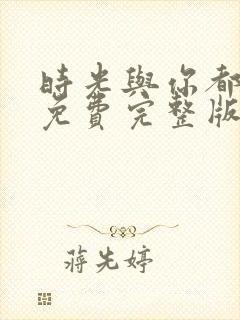 時光與你都
免費完整版
蔣先婷